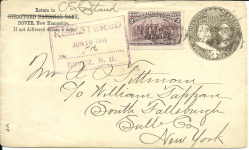 Return to
STRAFFORD NATIONAL BANK,
DOVER, New Hampshire,
If not delivered within
REGISTERED
JUN 10
DOVER, N. H.
Mrs. A. P. Tittmann
To William Tappan
South Fallsburgh
Sull. Co.
New York